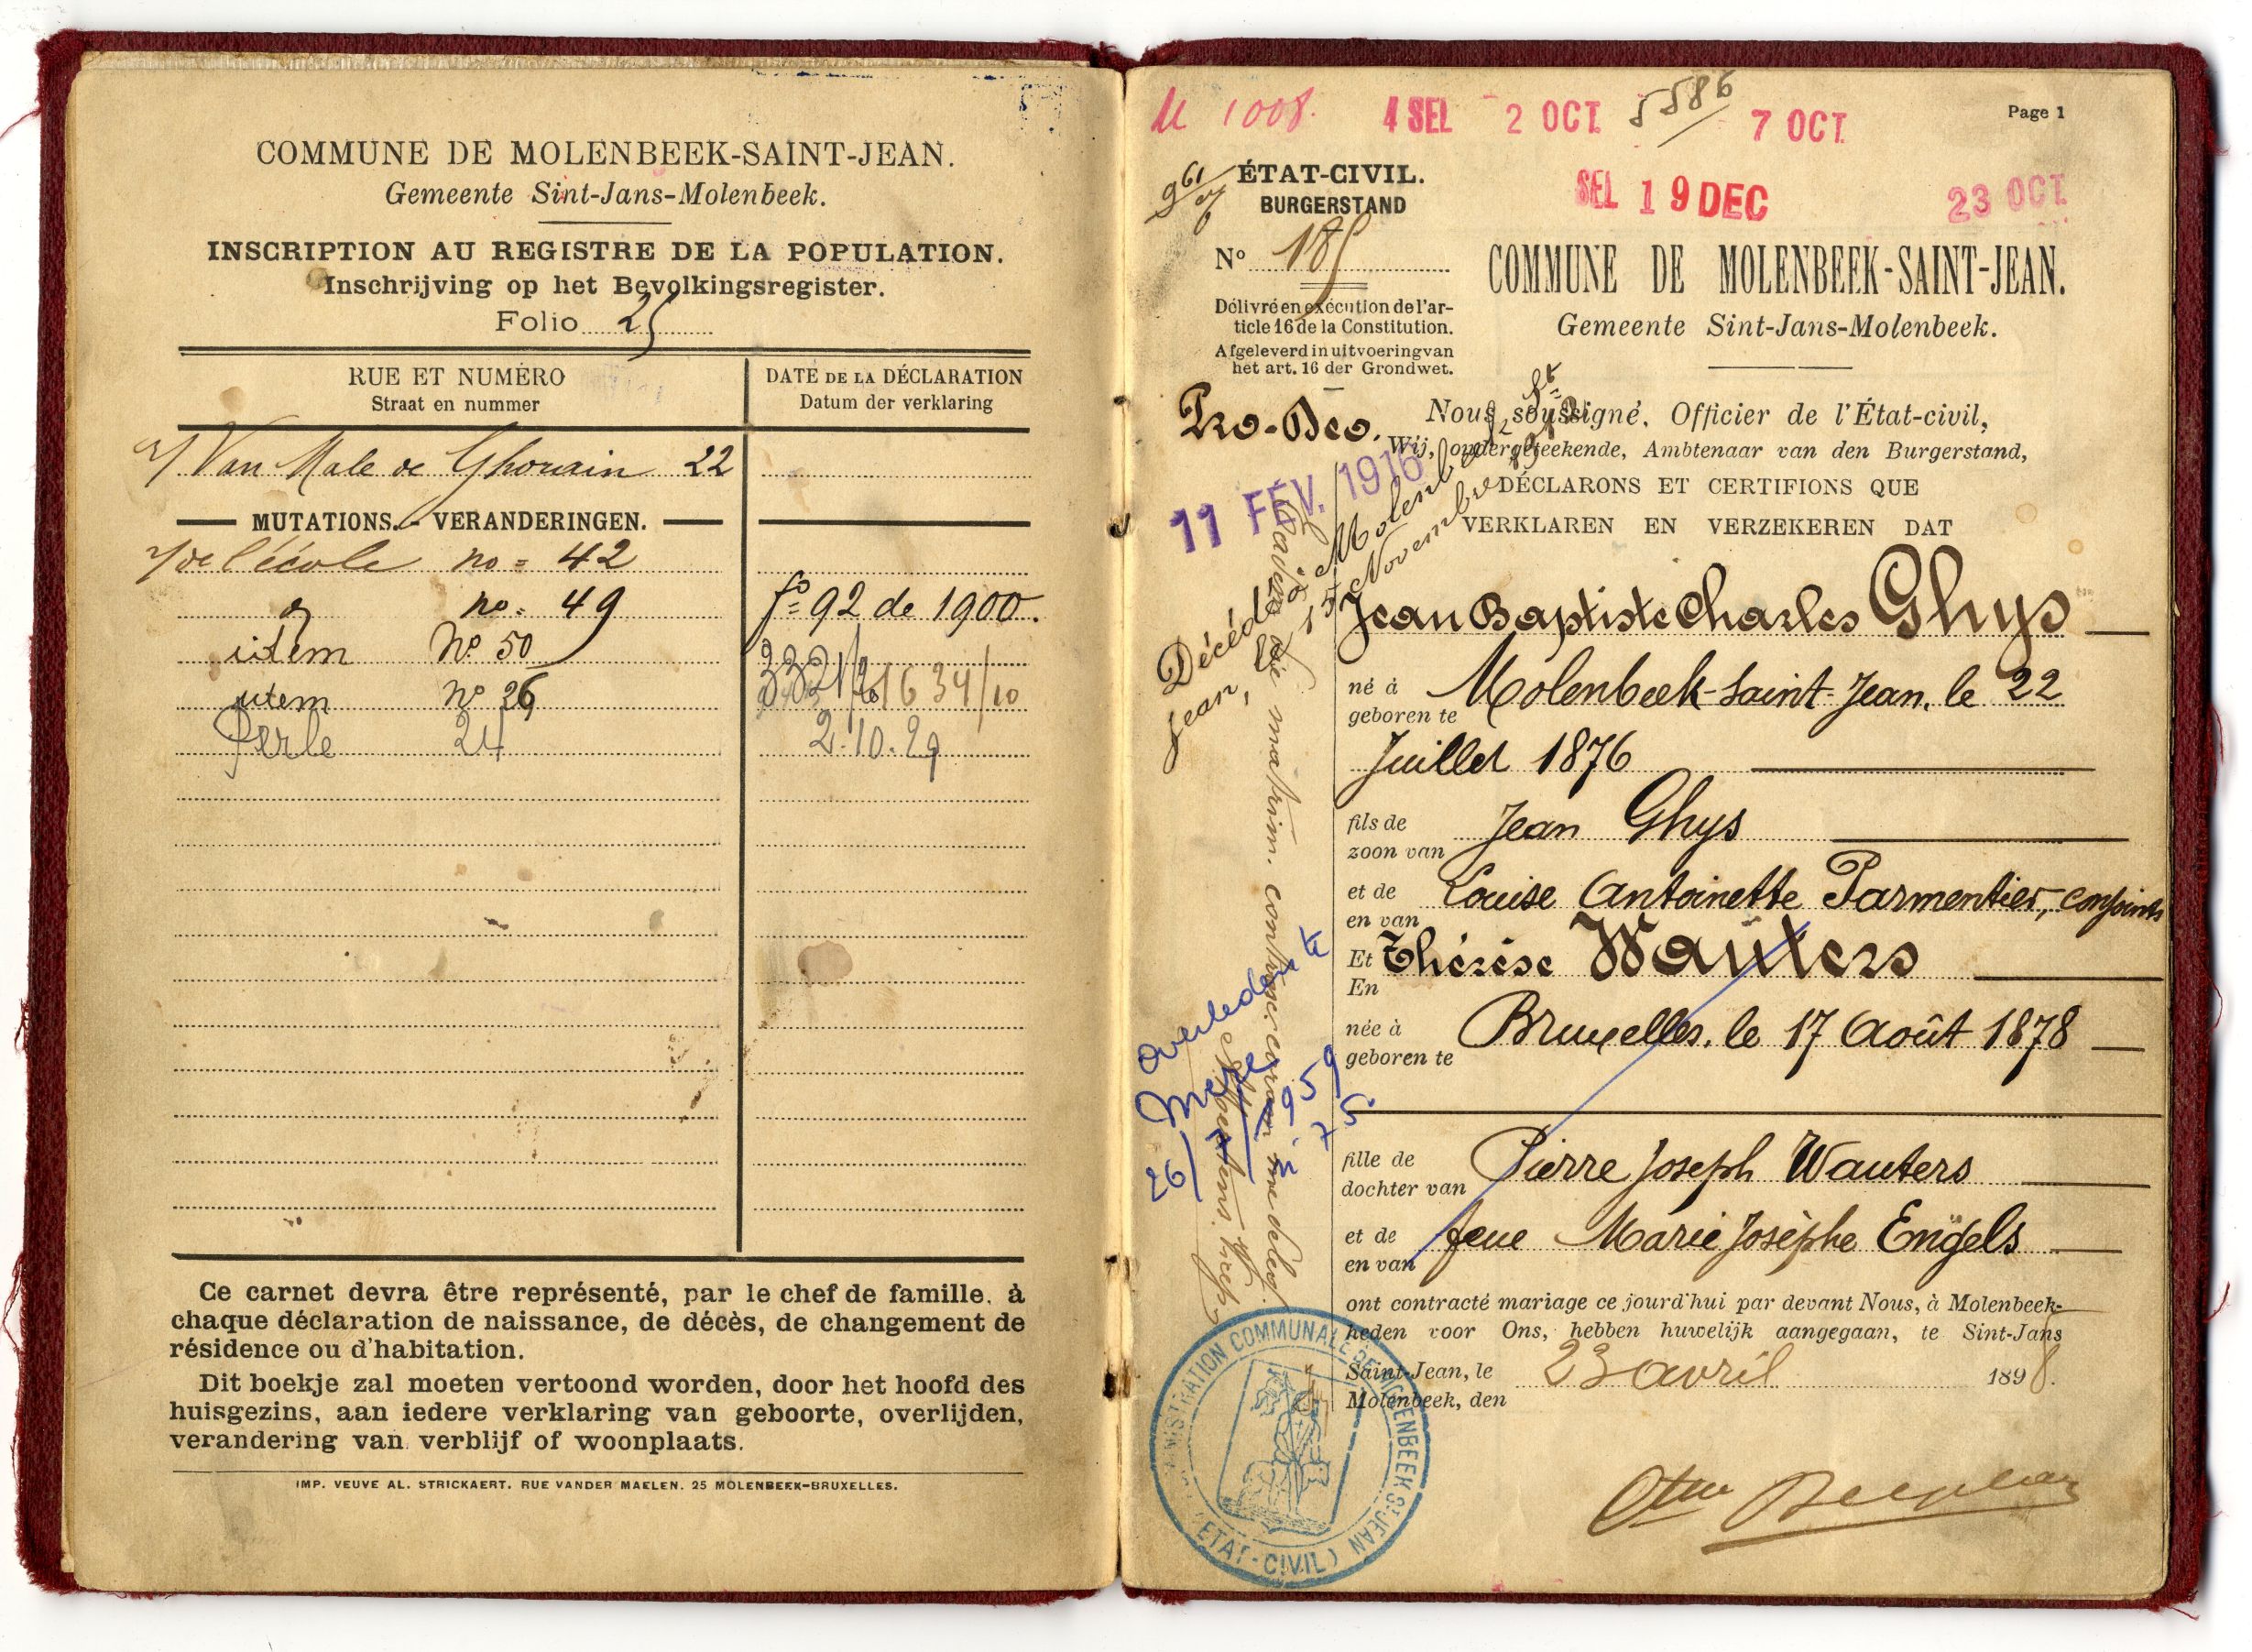 COMMUNE DE MOLENBEEK-SAINT-JEAN.
Gemeente Sint-Jans-Molenbeek.
INSCRIPTION AU REGISTRE DE LA POPULATION.
Inschrijving op het Bevolkingsregister.
Folio 25
RUE ET NUMÉRO
Straat en nummer
DATE DE LA DÉCLARATION
Datum der verklaring
Van Male de Ghorain 22
MUTATIONS. - VERANDERINGEN.
de l'école no = 42
no = 49 fo = 92 de 1900.
idem No 50
item No 26 1634/10
Perle 24 2.10.29
Ce carnet devra être représenté, par le chef de famille, à
chaque déclaration de naissance, de décès, de changement de
résidence ou d'habitation.
Dit boekje zal moeten vertoond worden, door het hoofd des
huisgezins, aan iedere verklaring van geboorte, overlijden,
verandering van verblijf of woonplaats.
IMP. VEUVE AL. STRICKAERT. RUE VANDER MAELEN. 25 MOLENBEEK-BRUXELLES.
1008. 4 SEL 2 OCT. 5586 7 OCT.
Page 1
SEL 19 DEC 23 OCT.
ÉTAT-CIVIL.
BURGERSTAND
No 185
Délivré en exécution de l'ar-
ticle 16 de la Constitution.
Afgeleverd in uitvoering van
het art. 16 der Grondwet.
COMMUNE DE MOLENBEEK-SAINT-JEAN.
Gemeente Sint-Jans-Molenbeek.
Pro-Deo.
11 FÉV. 1916
Nous soussigné, Officier de l'État-civil,
Wij, ondergeteekende, Ambtenaar van den Burgerstand,
DÉCLARONS ET CERTIFIONS QUE
VERKLAREN EN VERZEKEREN DAT
Décédé à Molenbeek St
Jean, 15 Novembre
Jean Baptiste Charles Ghys
né à Molenbeek-Saint-Jean, le 22
geboren te
Juillet 1876
fils de Jean Ghys
zoon van
et de Louise Antoinette Parmentier, conjoints
en van
Et Thérèse Wauters
En
née à Bruxelles, le 17 Août 1878
geboren te
fille de Pierre Joseph Wauters
dochter van
et de feue Marie Josèphe Engels
en van
overleden te
26/ 1959
n° 75
ont contracté mariage ce jourd'hui par devant Nous, à Molenbeek-
heden voor Ons, hebben huwelijk aangegaan, te Sint-Jans
Saint-Jean, le 23 avril 1898.
Molenbeek, den
ADMINISTRATION COMMUNALE DE MOLENBEEK ST JEAN
(ETAT-CIVIL)